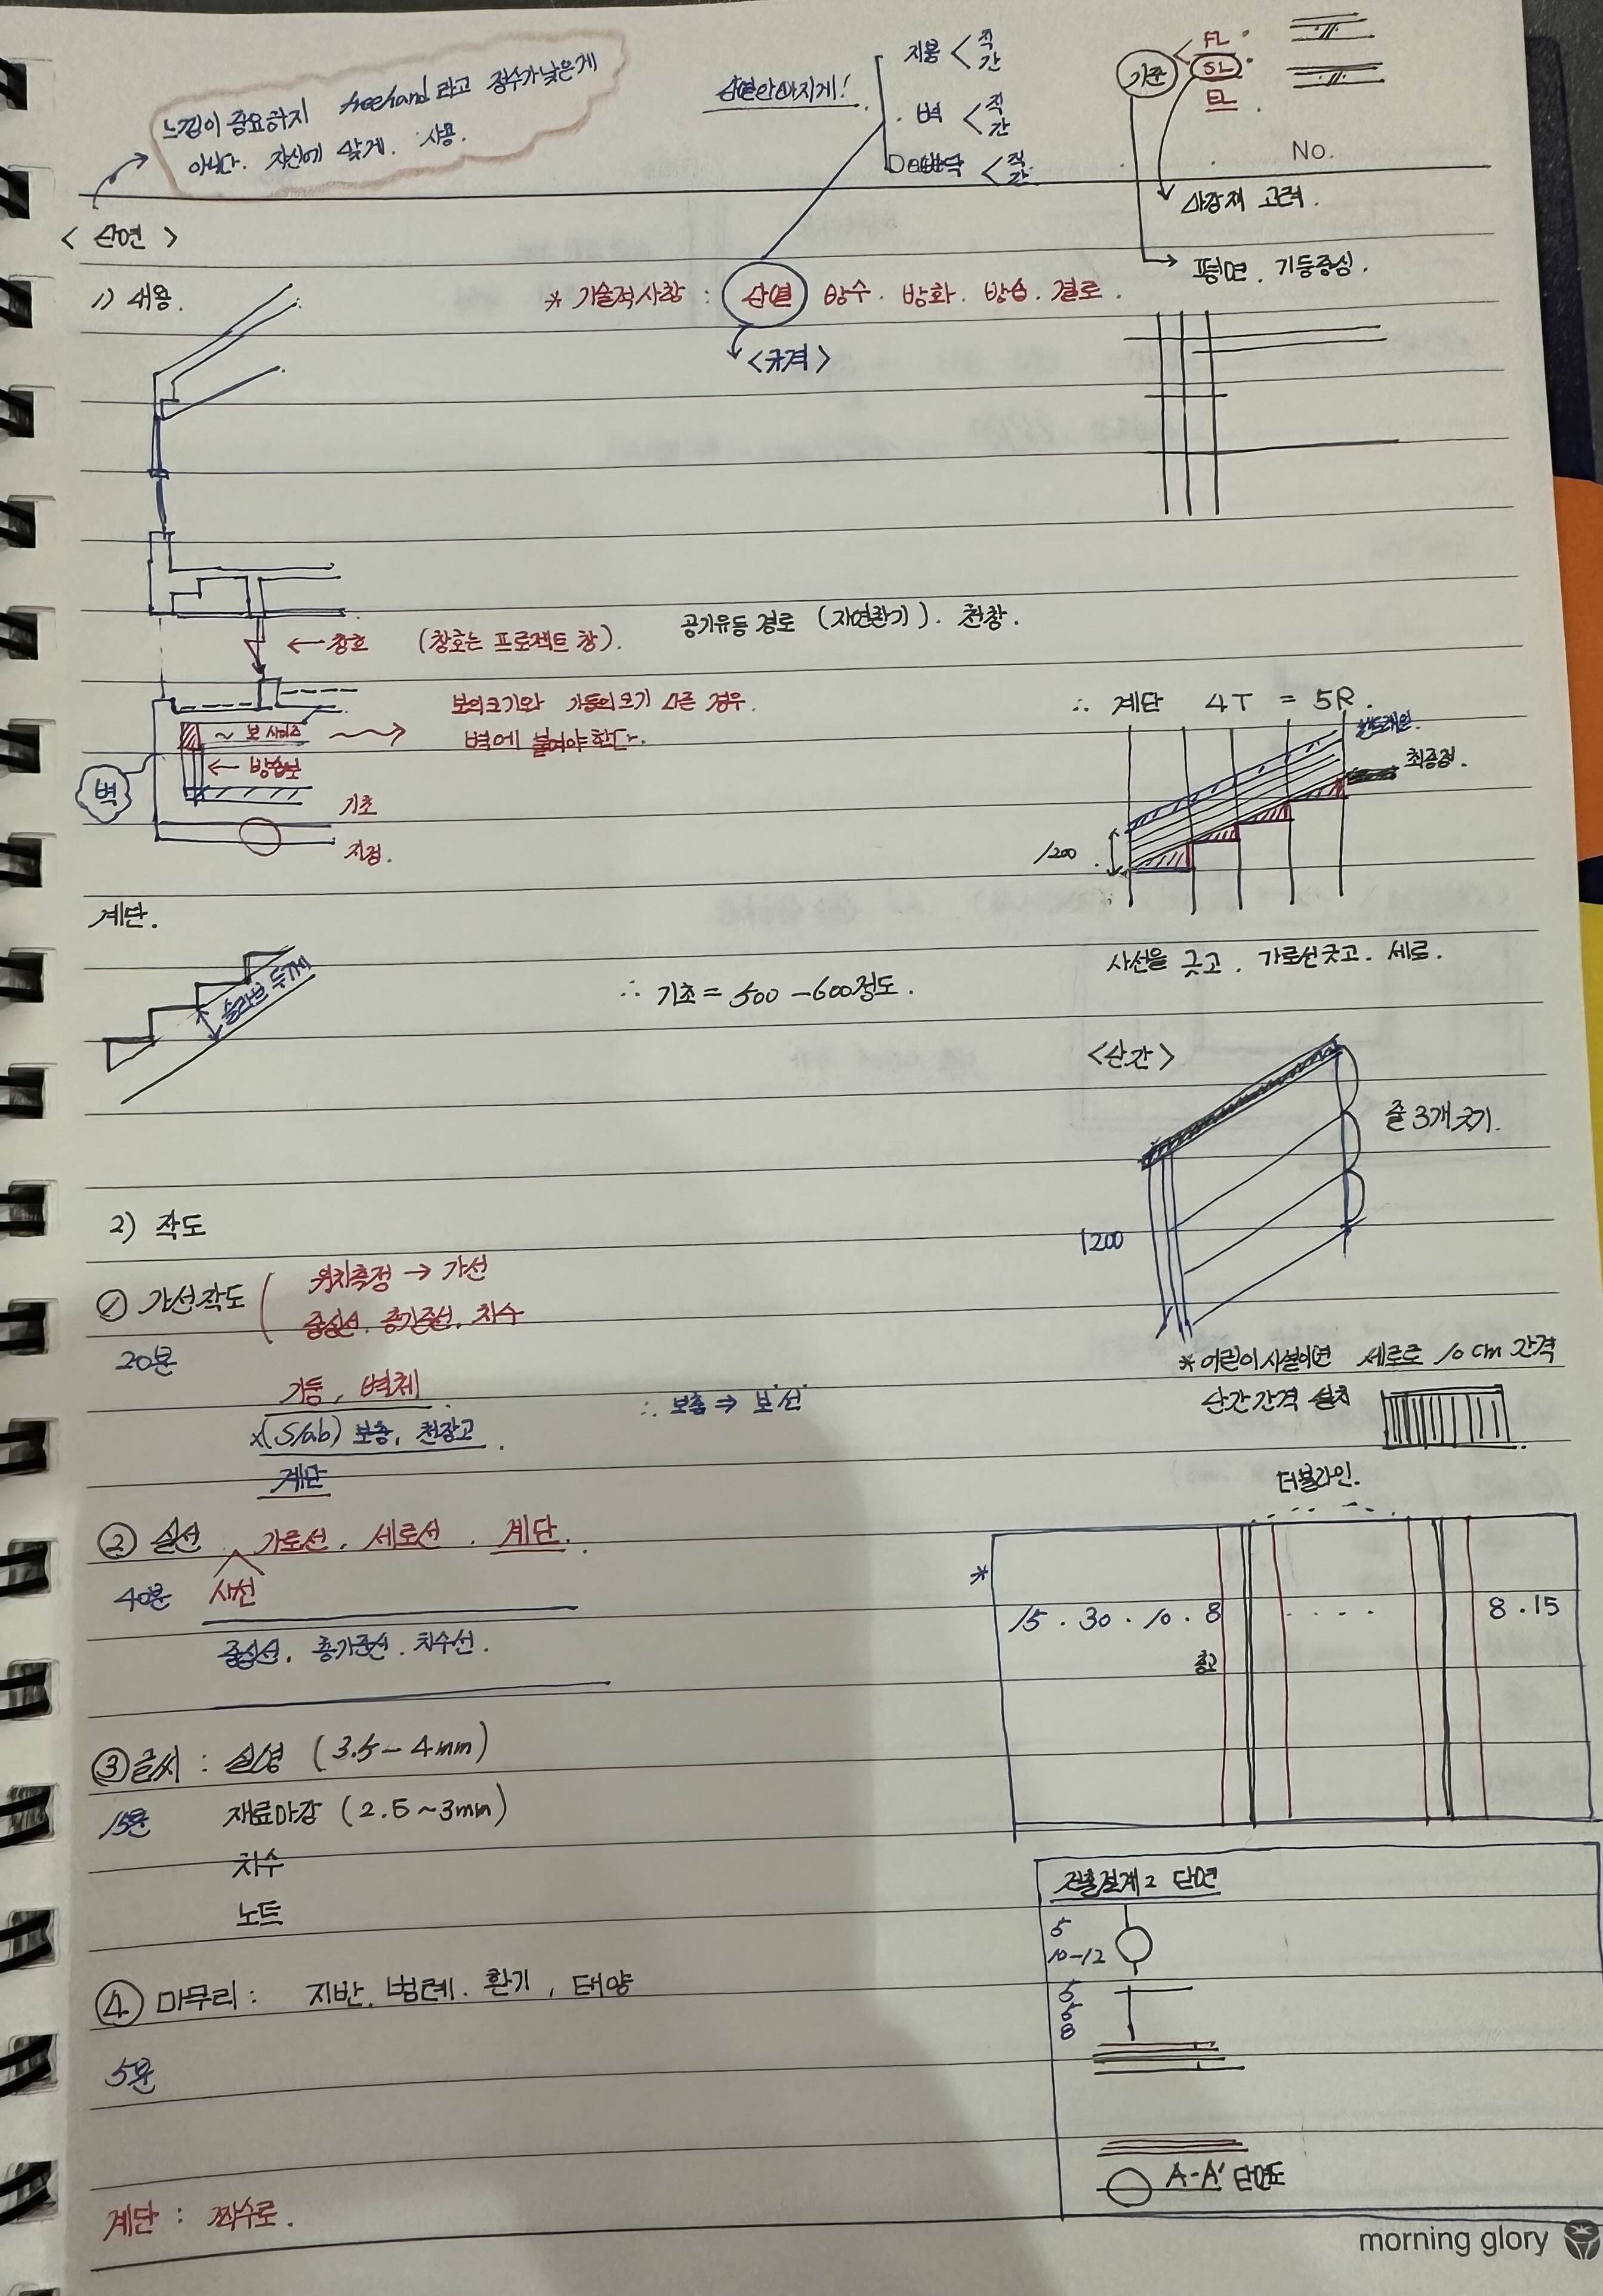 느낌이 중요하지 freehand 라고 점수가 낮은게
아니다. 자신에 맞게. 사용.
지붕 < 직 간
벽 < 직 간
바닥 < 직 간
기준
FL
SL
EL
No.
마감재 고려.
평면. 기둥중심.
< 단면 >
1) 내용.
* 기술적사항 : 단열 방수. 방화. 방습. 결로.
<규격>
공기유동 경로 (자연환기). 천창.
← 창호 (창호는 프로젝트 창).
보의크기와 기둥의크기 다른 경우.
벽에 붙여야한다.
~ 보 사이즈
← 방습보
벽
기초
지정.
∴ 계단 4T = 5R.
핸드레일.
최종점.
1200
계단.
슬라브 두께
사선을 긋고. 가로선긋고. 세로.
∴ 기초 = 500 - 600정도.
<난간>
줄 3개 긋기.
1200
2) 작도
① 가선작도
위치측정 → 가선
중심선. 층기준선. 치수
20분
기둥, 벽체
x(Slab) 보춤, 천장고.
∴ 보춤 ⇒ 보선
계단
* 어린이시설이면 세로로 10cm 간격
난간간격 설치
더블라인.
② 실선. 가로선. 세로선. 계단.
사선
40분
중심선. 층기준선. 치수선.
*
15 . 30 . 10 . 8 . . . . 8 . 15
층고
③ 글씨 : 실명 (3.5 - 4mm)
15분
재료마감 (2.5 ~ 3mm)
치수
노트
④ 마무리 : 지반. 범례. 환기, 태양
5분
계단 : 짝수로.
건축설계2 단면
5
10-12
5
5
8
A-A' 단면도
morning glory